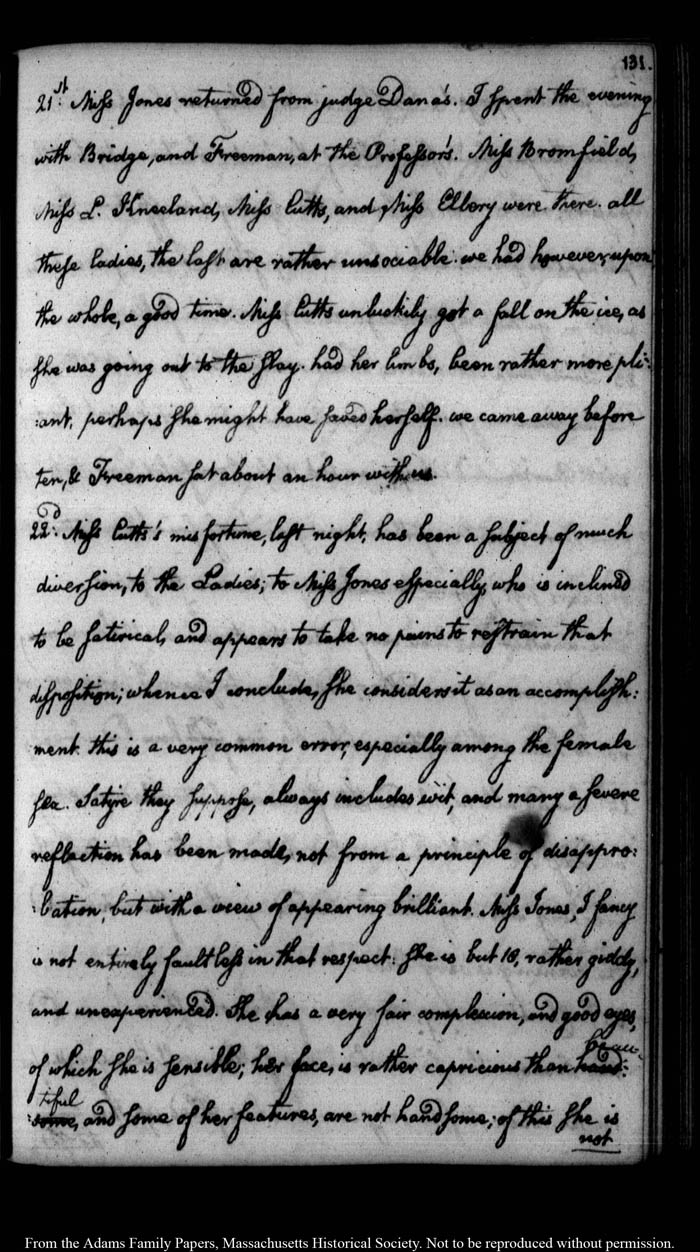 131.
21st. Miss Jones returned from judge Dana's. I spent the evening
with Bridge, and Freeman, at the Professor's. Miss Bromfield,
Miss L. Kneeland, Miss Cutts, and Miss Ellery were there. all
these ladies, the last are rather unsociable. we had however, upon
the whole, a good time. Miss Cutts unluckily got a fall on the ice, as
she was going out to the slay. had her limbs, been rather more pli:
:ant, perhaps she might have saved herself. we came away before
ten, & Freeman sat about an hour with us.
22d. Miss Cutts's misfortune, last night, has been a subject of much
diversion, to the Ladies; to Miss Jones especially, who is inclined
to be satirical, and appears to take no pains to restrain that
disposition; whence I conclude, she considers it as an accomplish:
:ment. this is a very common error, especially among the female
sex. Satyre they suppose, always includes wit, and many a severe
reflection has been made, not from a principle of disappro:
:bation, but with a view of appearing brilliant. Miss Jones, I fancy
is not entirely faultless in that respect: she is but 18, rather giddy,
and unexperienced. She has a very fair complexion, and good eyes,
of which she is sensible; her face, is rather capricious than hand: beau-
:some, tiful and some of her features, are not handsome; of this she is
not
From the Adams Family Papers, Massachusetts Historical Society. Not to be reproduced without permission.